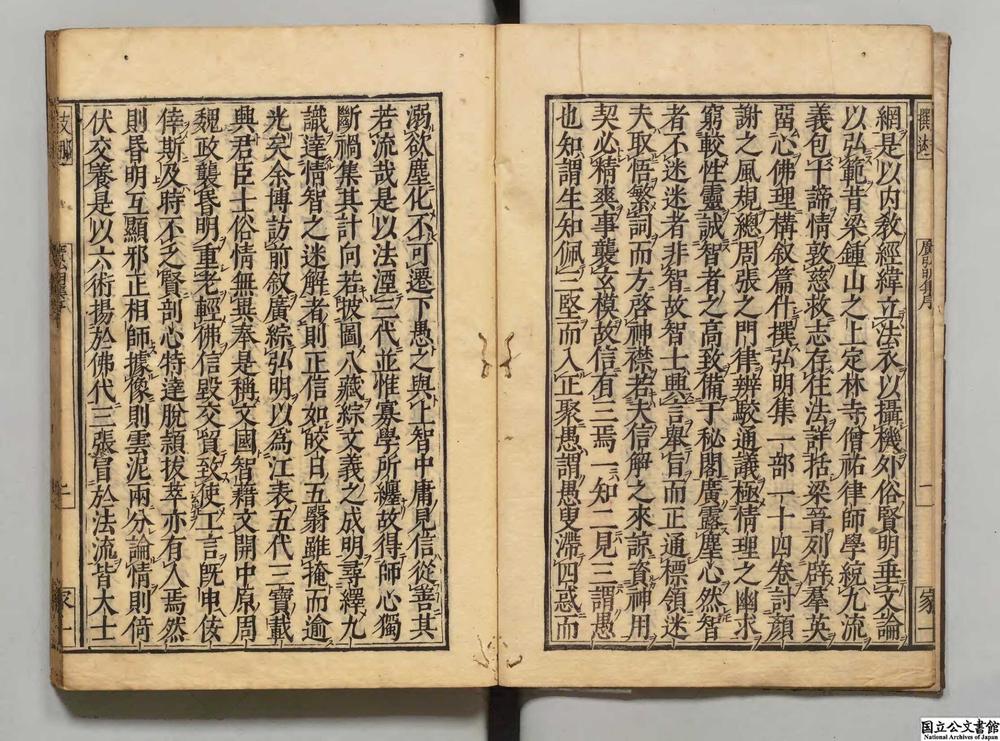 網是以内敎經緯立法衣以攝機外俗賢明垂文論
以弘範昔梁鍾山之上定林寺僧祐律師學統九流
義包十諦情敦慈救志存住法詳括梁晉列辟羣英
留心佛理構叙篇什撰弘明集一部一十四卷討顏
謝之風規總周張之門律辯駮通議極情理之幽求
窮較性靈誠智者之高致備于秘閣廣露塵心然智
者不迷迷者非智故智士興言舉旨而正通標領迷
夫取悟繁詞而方啓神襟若夫信解之來諒資神用
契必精爽事襲玄模故信有三焉一知二見三謂愚
也知謂生知佩三堅而入正聚愚謂愚叟滯四惑而
溺欲塵化不可遷下愚之與上智中庸見信從善其
若流哉是以法湮三代並惟寡學所纏故得師心獨
斷禍集其計向若披圖八藏綜文義之成明尋繹九
識達情智之迷解者則正信如皎日五翳雖掩而逾
光矣余博訪前叙廣綜弘明以爲江表五代三寶載
興君臣士俗情無異奉是稱文國智籍文開中原周
魏政襲昏明重老輕佛信毀交貿致使工言既申佞
倖斯及時不乏賢剖心特達脫頴拔萃亦有人焉然
則昏明互顯邪正相師據像則雲泥兩分論情則倚
伏交養是以六術揚於佛代三張冒於法流皆大士
廣弘明集序
一
家一
國立公文書館
National Archives of Japan